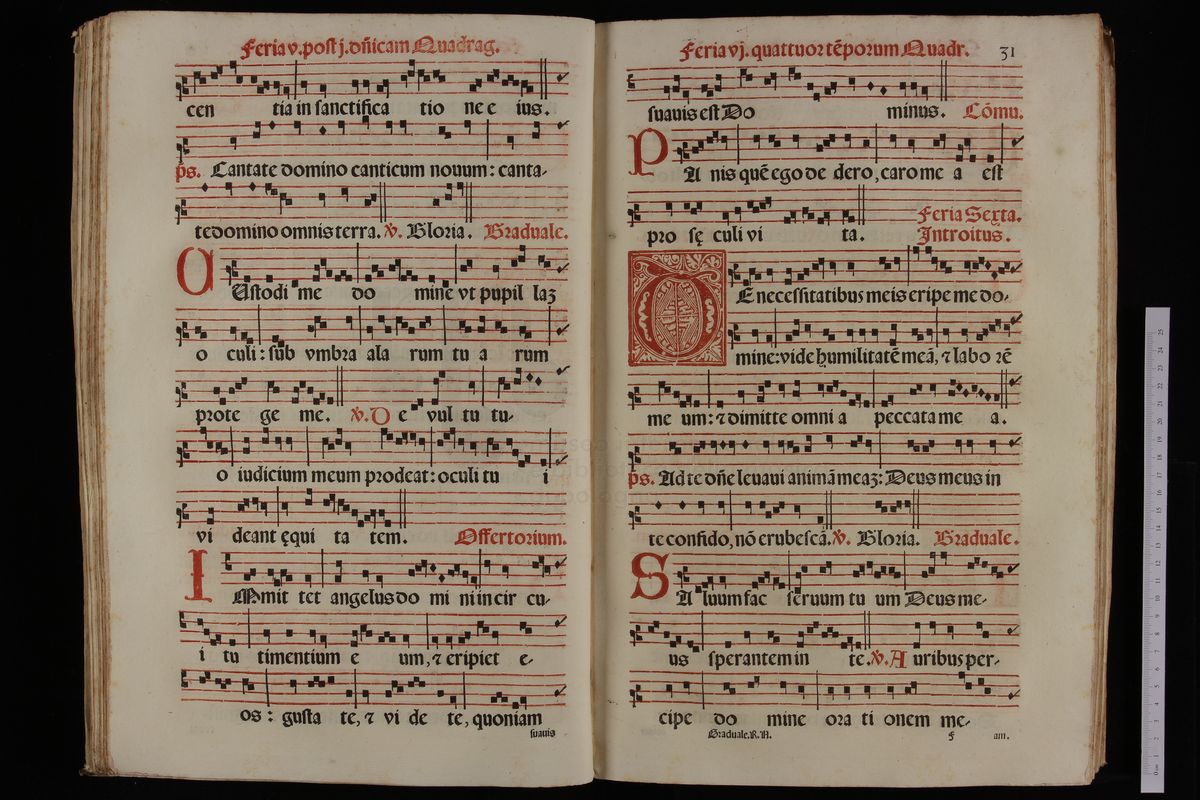 Feria v. post j. dñicam Quadrag.
cen tia in sanctifica tio ne e ius.
p̄s. Cantate domino canticum nouum: canta-
te domino omnis terra. ℣. Gloria. Graduale.
CUstodi me do mine vt pupil laꝫ
o culi: sub vmbra ala rum tu a rum
prote ge me. ℣. De vul tu tu-
o iudicium meum prodeat: oculi tu i
vi deant ęqui ta tem. Offertorium.
IMmit tet angelus do mi ni in cir cu-
i tu timentium e um, ⁊ eripiet e-
os: gusta te, ⁊ vi de te, quoniam
suauis
Feria vj. quattuor tẽporum Quadr. 31
suauis est Do minus. Cõmu.
PAnis quẽ ego de dero, caro me a est
pro sę culi vi ta. Feria Sexta.
Introitus.
DE necessitatibus meis eripe me do-
mine: vide humilitatẽ meã, ⁊ labo rẽ
me um: ⁊ dimitte omni a peccata me a.
p̄s. Ad te dñe leuaui animã meaꝫ: Deus meus in
te confido, nõ erubescã. ℣. Gloria. Graduale.
SAluum fac seruum tu um Deus me-
us sperantem in te. ℣. Auribus per-
cipe do mine ora ti onem me-
Graduale. R. N. f am.